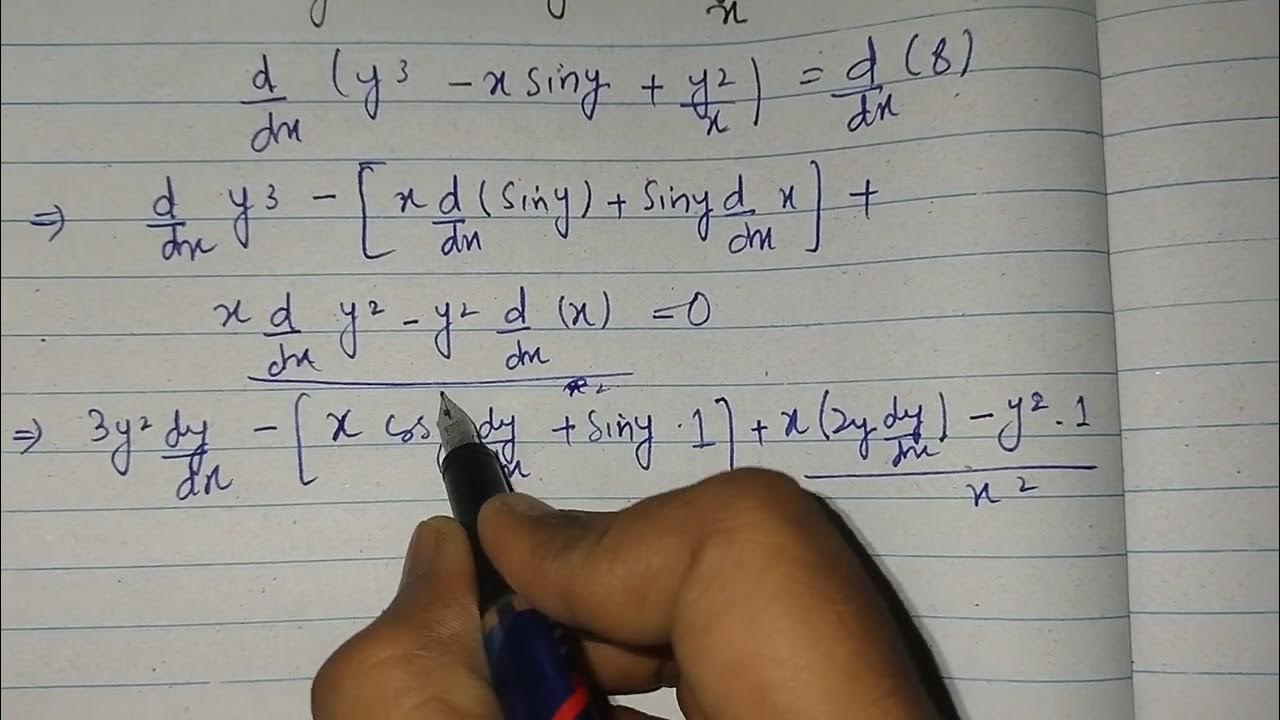 x
d/dx (y³ - x siny + y²/x) = d/dx (8)
⇒ d/dx y³ - [x d/dx (Siny) + Siny d/dx x] +
x d/dx y² - y² d/dx (x) / x² = 0
⇒ 3y² dy/dx - [x cos dy/dx + Siny · 1] + x(2y dy/dx) - y² · 1 / x²